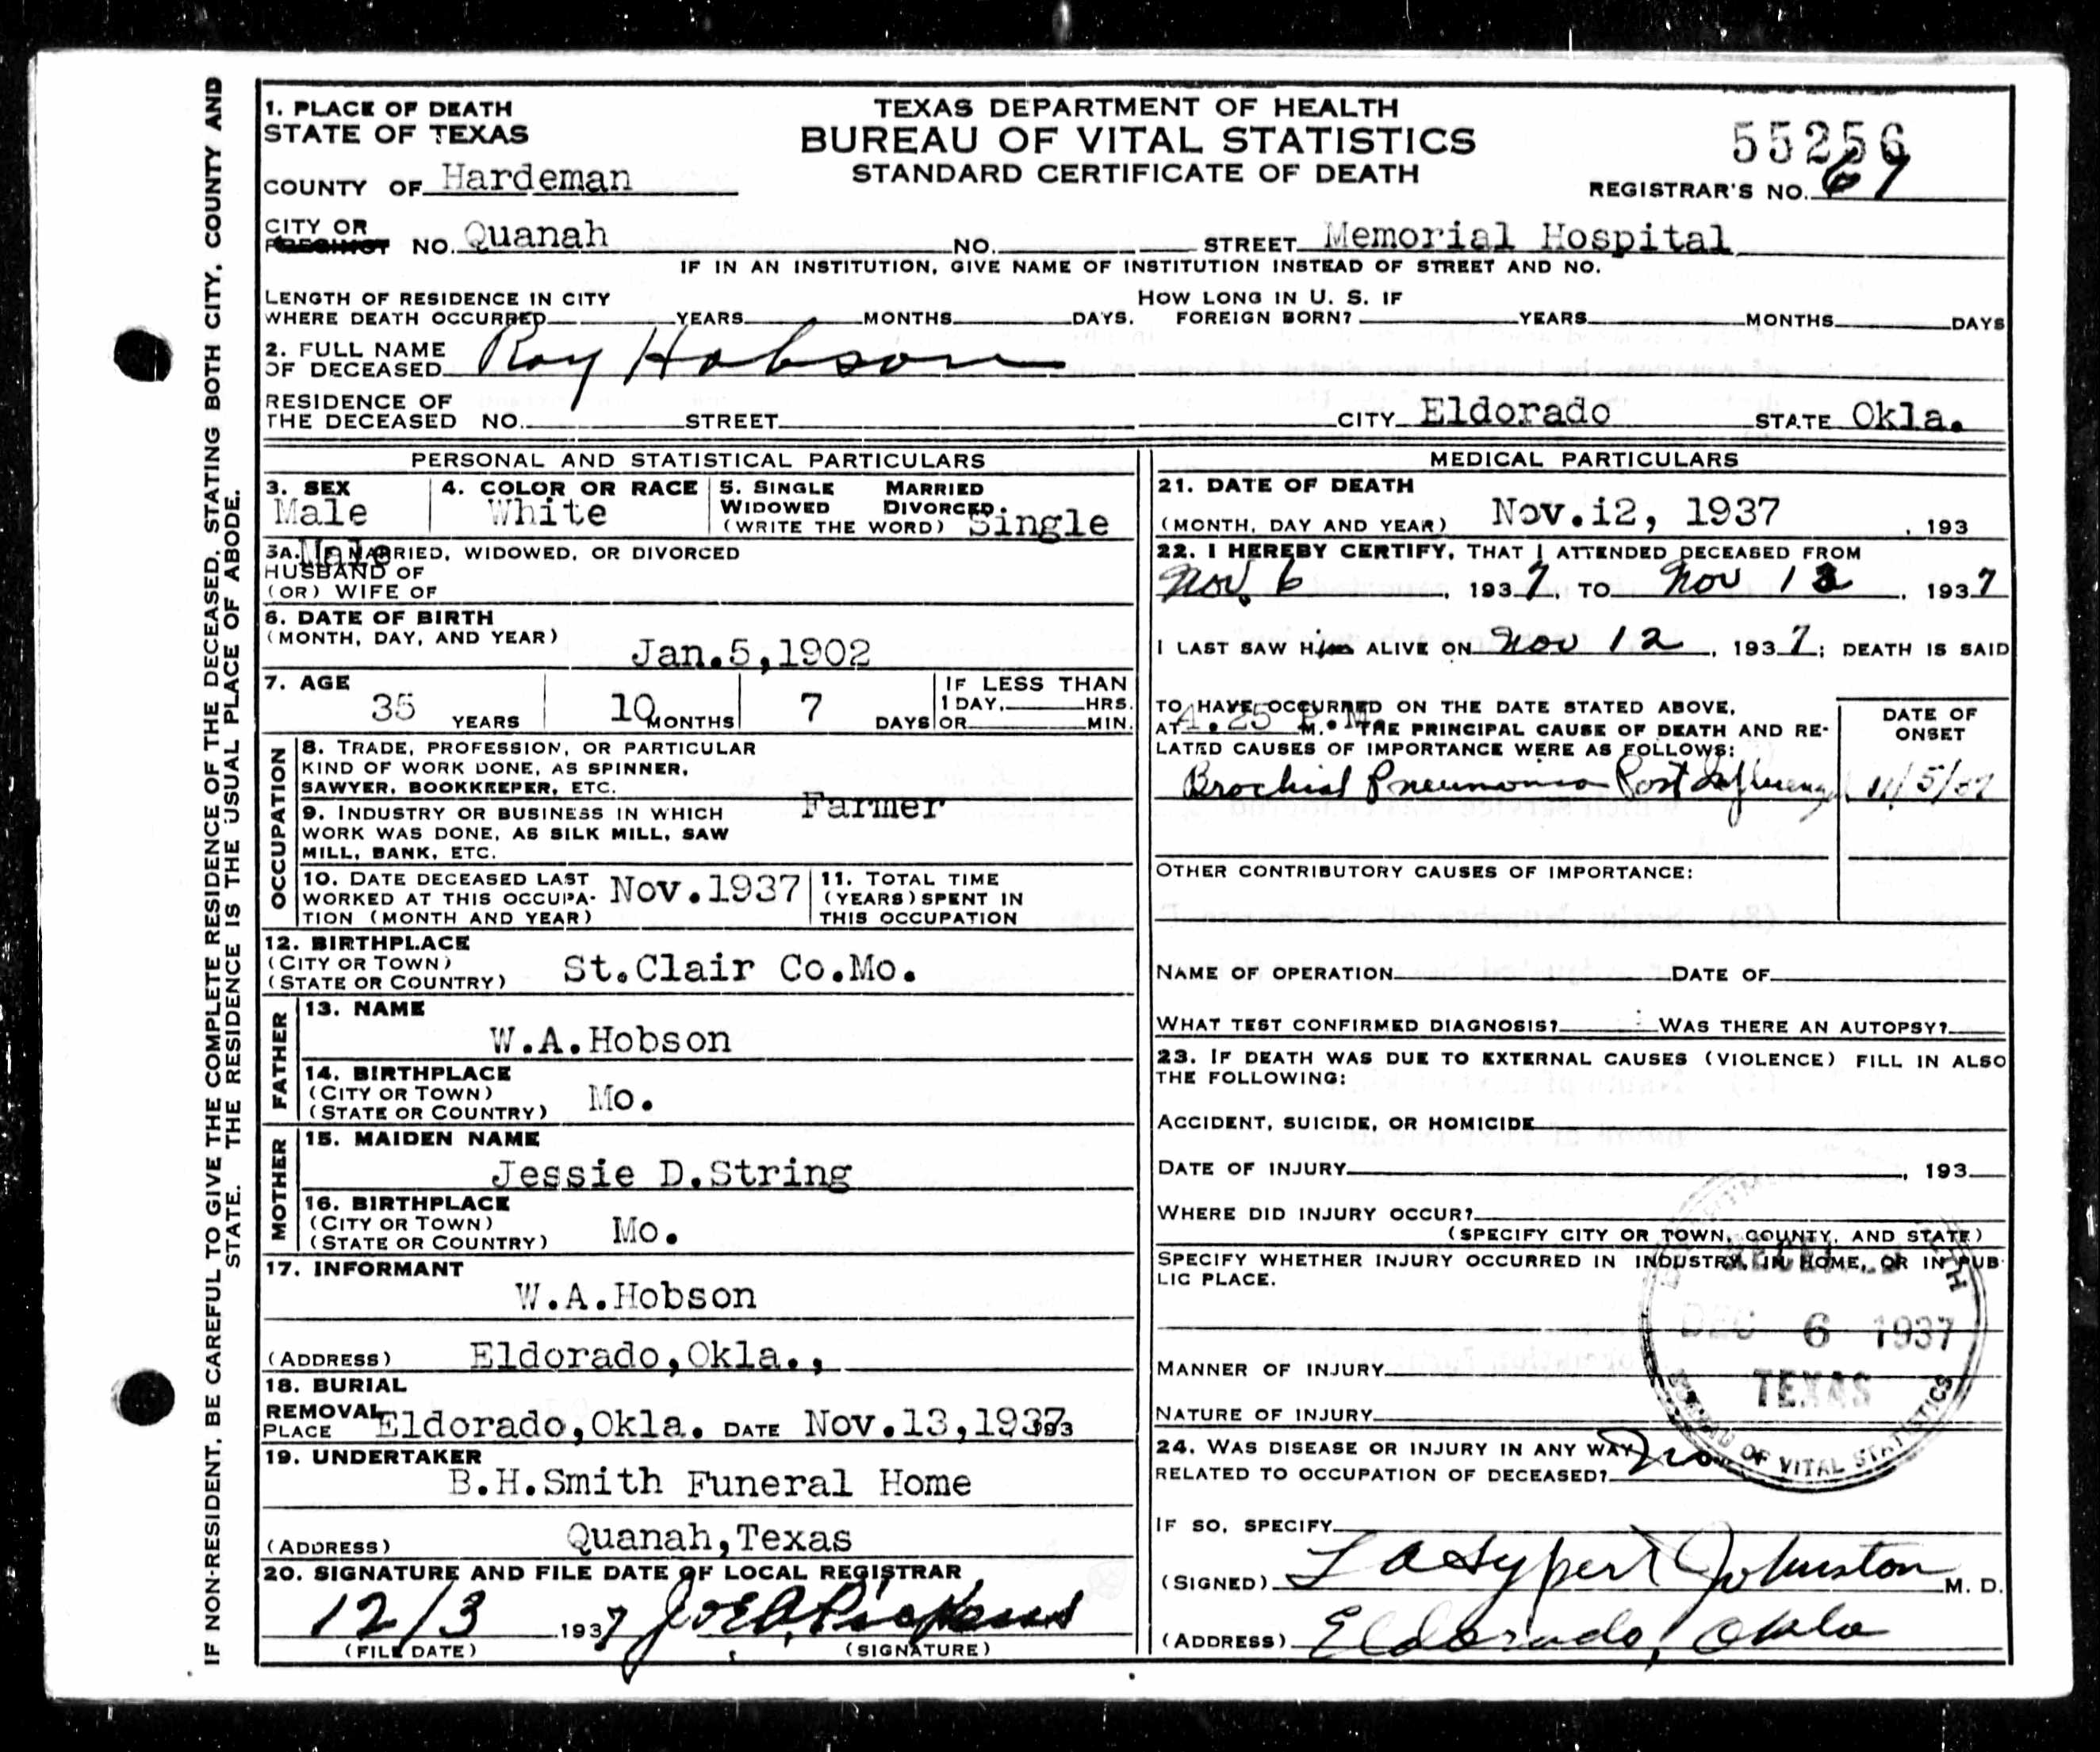 IF NON-RESIDENT, BE CAREFUL TO GIVE THE COMPLETE RESIDENCE OF THE DECEASED, STATING BOTH CITY, COUNTY AND
STATE. THE RESIDENCE IS THE USUAL PLACE OF ABODE.
TEXAS DEPARTMENT OF HEALTH
BUREAU OF VITAL STATISTICS
STANDARD CERTIFICATE OF DEATH
55256
REGISTRAR'S NO. 67
1. PLACE OF DEATH
STATE OF TEXAS
COUNTY OF Hardeman
CITY OR
PRECINCT NO. Quanah NO. STREET Memorial Hospital
IF IN AN INSTITUTION, GIVE NAME OF INSTITUTION INSTEAD OF STREET AND NO.
LENGTH OF RESIDENCE IN CITY HOW LONG IN U. S. IF
WHERE DEATH OCCURRED YEARS MONTHS DAYS. FOREIGN BORN? YEARS MONTHS DAYS
2. FULL NAME
OF DECEASED Roy Hobson
RESIDENCE OF
THE DECEASED NO. STREET CITY Eldorado STATE Okla.
PERSONAL AND STATISTICAL PARTICULARS
3. SEX 4. COLOR OR RACE 5. SINGLE MARRIED
WIDOWED DIVORCED
(WRITE THE WORD) Single
Male White
Male
3A. IF MARRIED, WIDOWED, OR DIVORCED
HUSBAND OF
(OR) WIFE OF
6. DATE OF BIRTH
(MONTH, DAY, AND YEAR) Jan.5,1902
7. AGE IF LESS THAN
35 YEARS 10 MONTHS 7 DAYS 1 DAY, HRS.
OR MIN.
OCCUPATION
8. TRADE, PROFESSION, OR PARTICULAR
KIND OF WORK DONE, AS SPINNER,
SAWYER, BOOKKEEPER, ETC.
Farmer
9. INDUSTRY OR BUSINESS IN WHICH
WORK WAS DONE, AS SILK MILL, SAW
MILL, BANK, ETC.
10. DATE DECEASED LAST
WORKED AT THIS OCCUPA-
TION (MONTH AND YEAR) Nov.1937
11. TOTAL TIME
(YEARS) SPENT IN
THIS OCCUPATION
12. BIRTHPLACE
(CITY OR TOWN)
(STATE OR COUNTRY) St.Clair Co.Mo.
FATHER
13. NAME
W.A.Hobson
14. BIRTHPLACE
(CITY OR TOWN)
(STATE OR COUNTRY) Mo.
MOTHER
15. MAIDEN NAME
Jessie D.String
16. BIRTHPLACE
(CITY OR TOWN)
(STATE OR COUNTRY) Mo.
17. INFORMANT
W.A.Hobson
(ADDRESS) Eldorado,Okla.,
18. BURIAL
REMOVAL
PLACE Eldorado,Okla. DATE Nov.13,1937 193
19. UNDERTAKER
B.H.Smith Funeral Home
(ADDRESS) Quanah,Texas
20. SIGNATURE AND FILE DATE OF LOCAL REGISTRAR
12/3 1937
(FILE DATE) (SIGNATURE)
MEDICAL PARTICULARS
21. DATE OF DEATH
(MONTH, DAY AND YEAR) Nov.i2, 1937, 193
22. I HEREBY CERTIFY, THAT I ATTENDED DECEASED FROM
Nov. 6, 1937, TO Nov 12, 1937
I LAST SAW Him ALIVE ON Nov 12, 1937; DEATH IS SAID
TO HAVE OCCURRED ON THE DATE STATED ABOVE,
AT .25 P.M. M. THE PRINCIPAL CAUSE OF DEATH AND RE-
LATED CAUSES OF IMPORTANCE WERE AS FOLLOWS:
DATE OF
ONSET
Brochial Pneumonia Post Influenza 11/5/37
OTHER CONTRIBUTORY CAUSES OF IMPORTANCE:
NAME OF OPERATION DATE OF
WHAT TEST CONFIRMED DIAGNOSIS? WAS THERE AN AUTOPSY?
23. IF DEATH WAS DUE TO EXTERNAL CAUSES (VIOLENCE) FILL IN ALSO
THE FOLLOWING:
ACCIDENT, SUICIDE, OR HOMICIDE
DATE OF INJURY , 193
WHERE DID INJURY OCCUR?
(SPECIFY CITY OR TOWN, COUNTY, AND STATE)
SPECIFY WHETHER INJURY OCCURRED IN INDUSTRY, IN HOME, OR IN PUB-
LIC PLACE.
DEC 6 1937
TEXAS
BUREAU OF VITAL STATISTICS
MANNER OF INJURY
NATURE OF INJURY
24. WAS DISEASE OR INJURY IN ANY WAY
RELATED TO OCCUPATION OF DECEASED? No
IF SO, SPECIFY
(SIGNED) L A Sypert Johnston M. D.
(ADDRESS) Eldorado, Okla